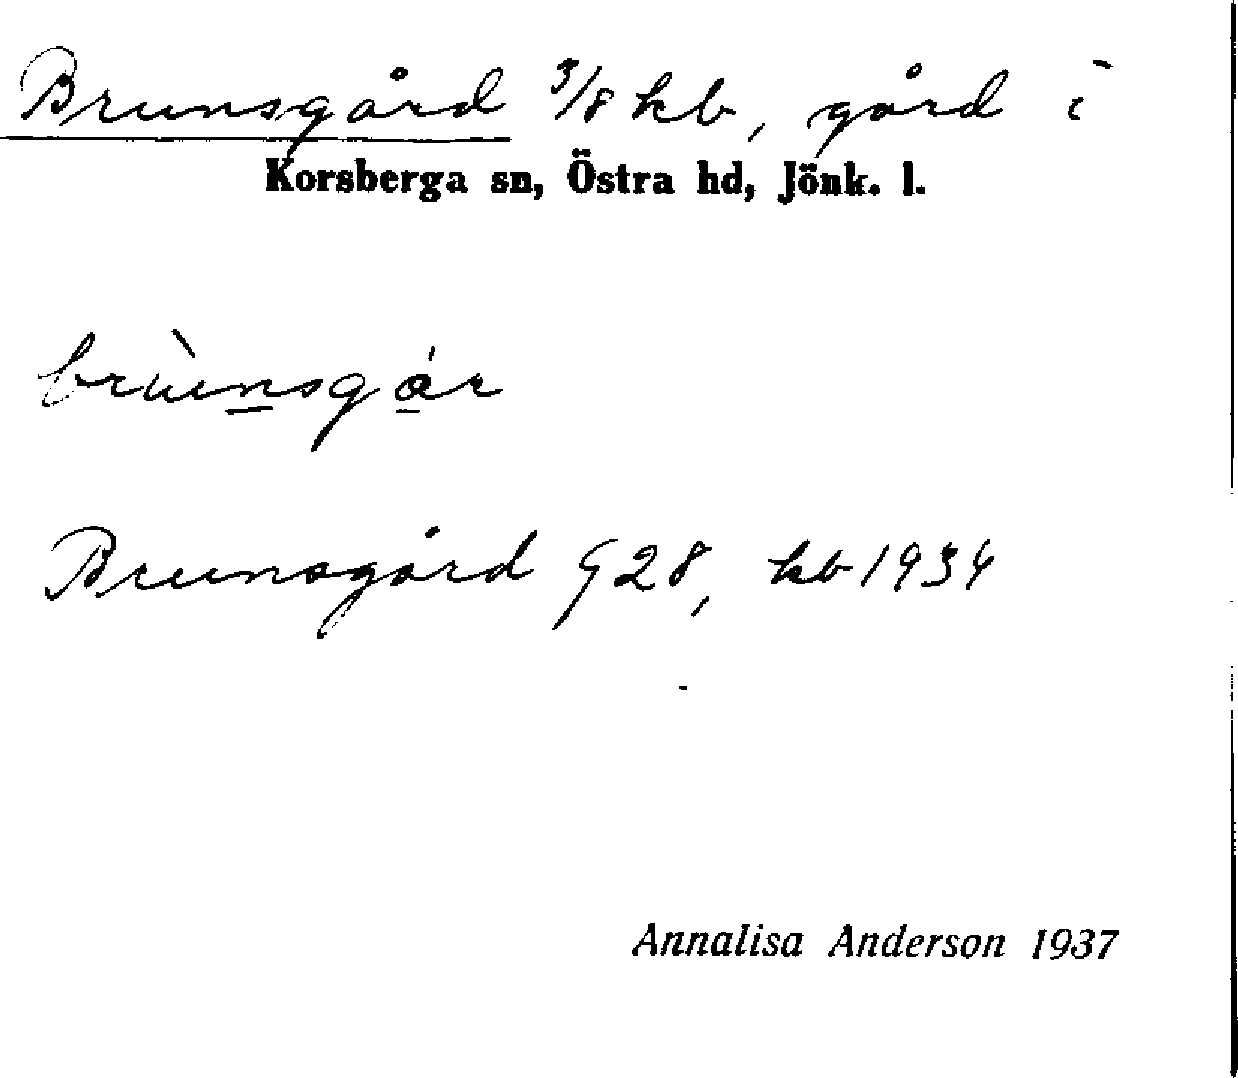 Brunsgård 3/8 kb, gård i
Korsberga sn, Östra hd, Jönk. l.
brùnsgár
Brunsgård G28, kb 1934
Annalisa Anderson 1937